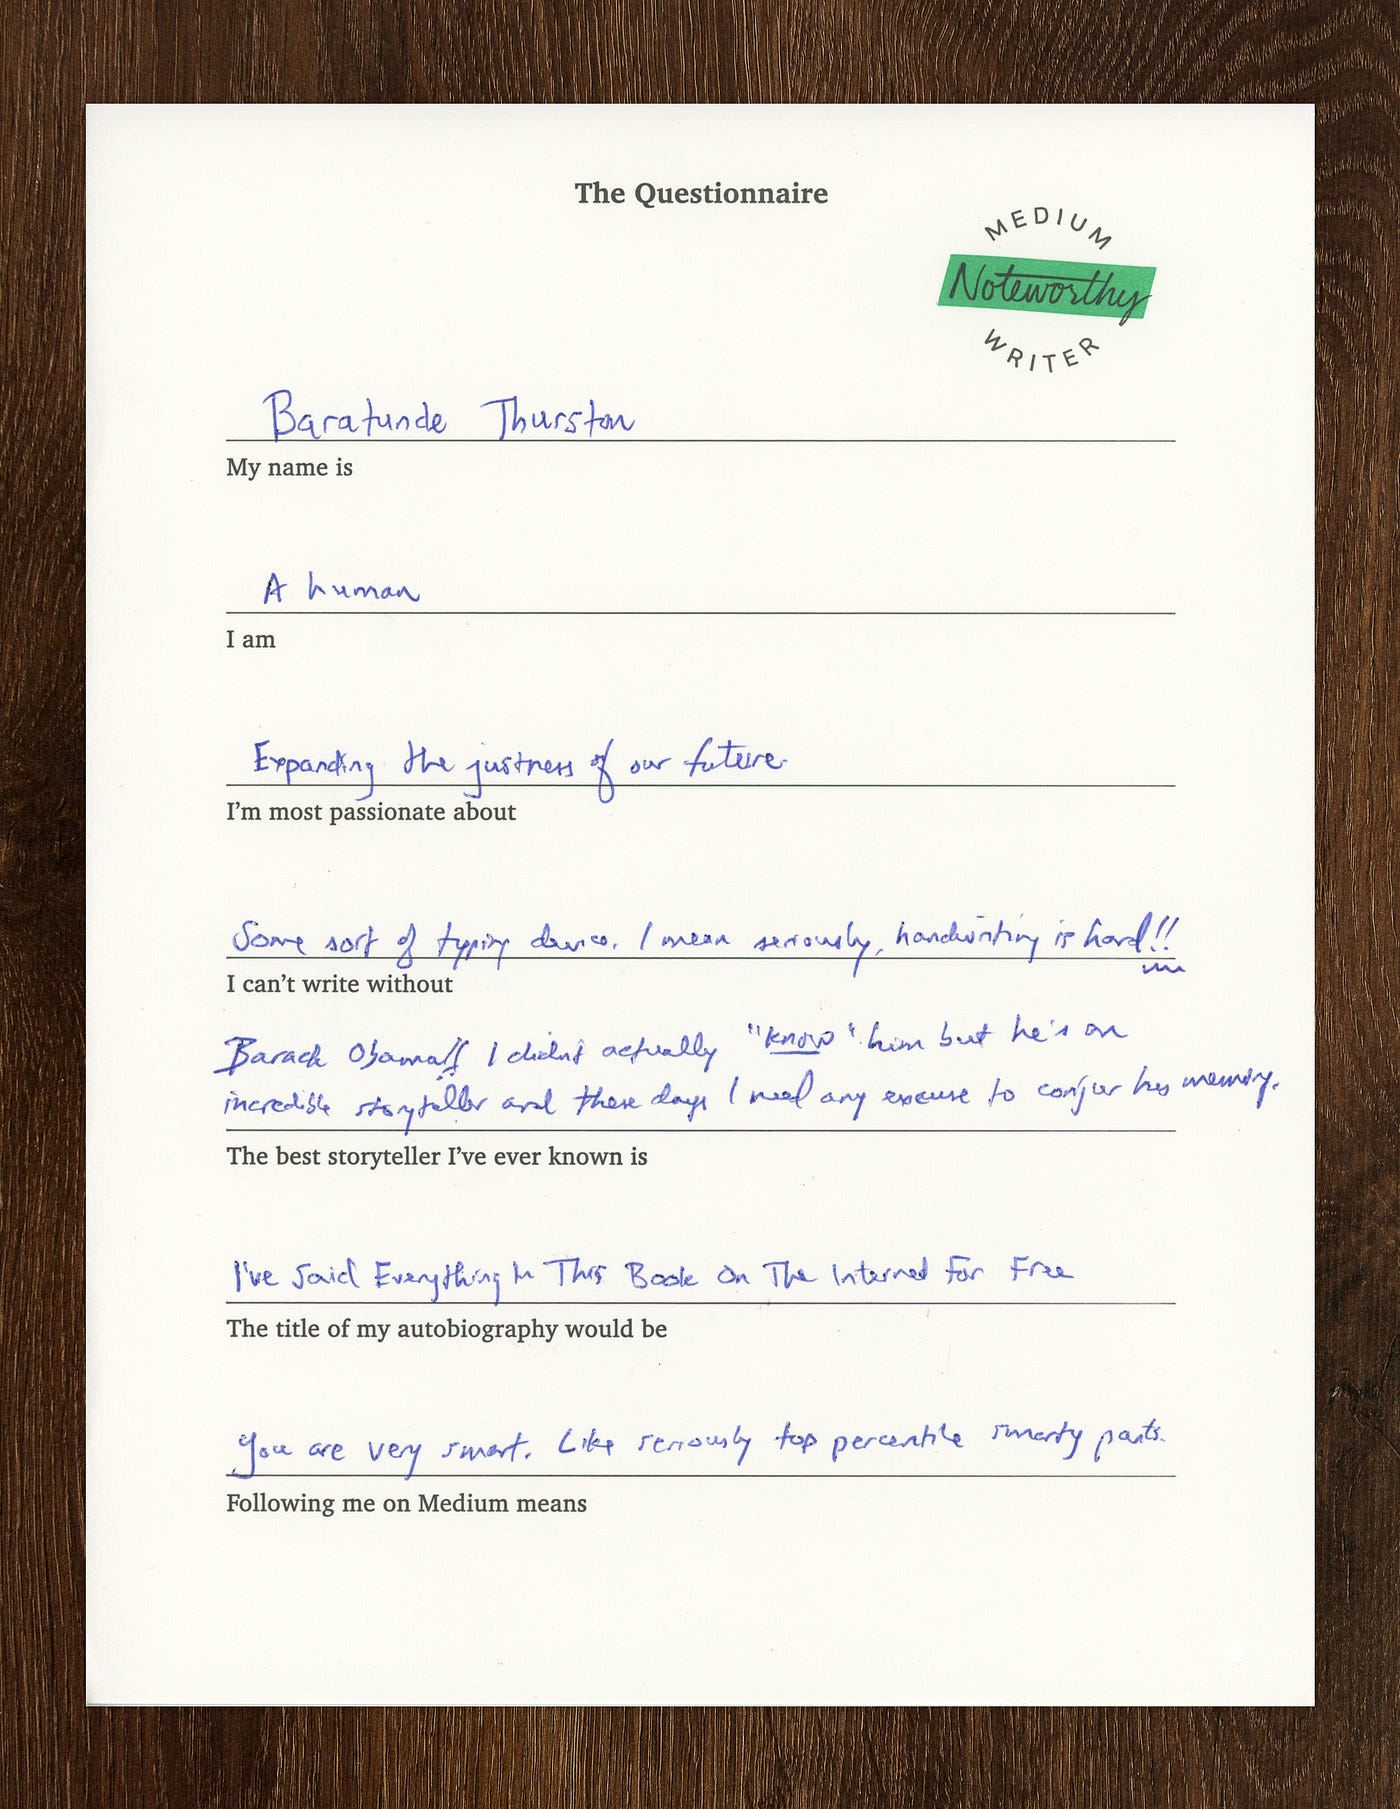 The Questionnaire
MEDIUM
Noteworthy
WRITER
Baratunde Thurston
My name is
A human
I am
Expanding the justness of our future.
I'm most passionate about
Some sort of typing device. I mean seriously, handwriting is hard!!
I can't write without
Barack Obama!! I didn't actually "know" him but he's an
incredible storyteller and these days I need any excuse to conjur his memory.
The best storyteller I've ever known is
I've Said Everything In This Book On The Internet For Free
The title of my autobiography would be
You are very smart. Like seriously top percentile smarty pants.
Following me on Medium means